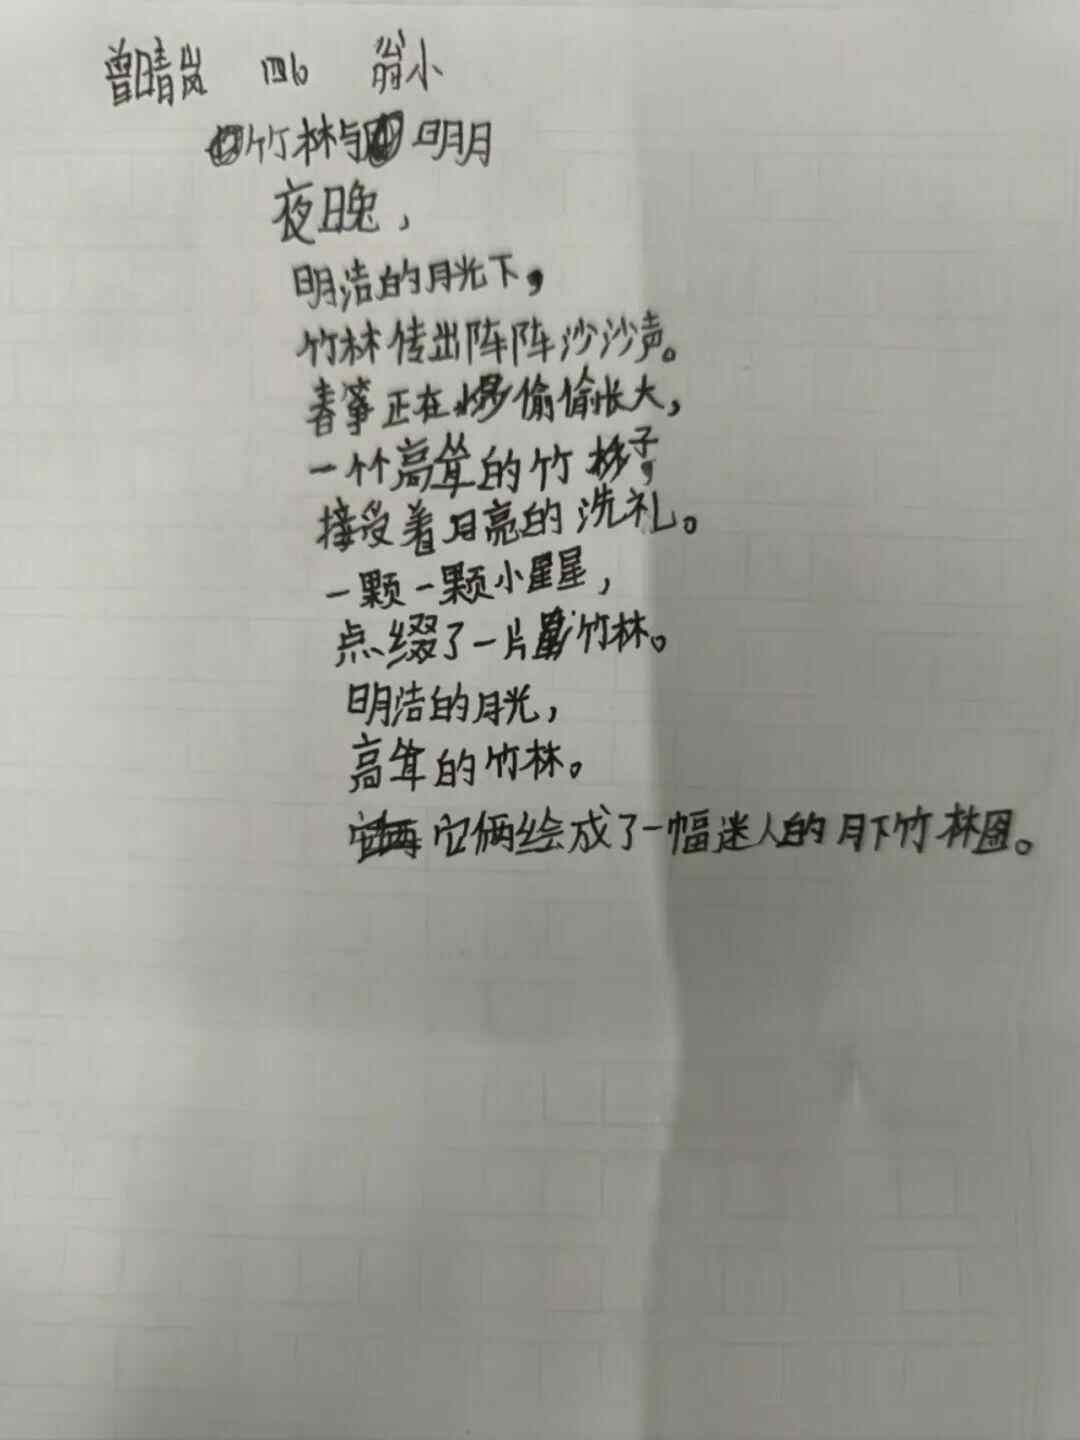 曾晴岚 四6 翁小
竹林与明月
夜晚，
明洁的月光下，
竹林传出阵阵沙沙声。
春筝正在偷偷长大，
一个个高耸的竹子，
接受着月亮的洗礼。
一颗一颗小星星，
点缀了一片竹林。
明洁的月光，
高耸的竹林。
它俩绘成了一幅迷人的月下竹林图。